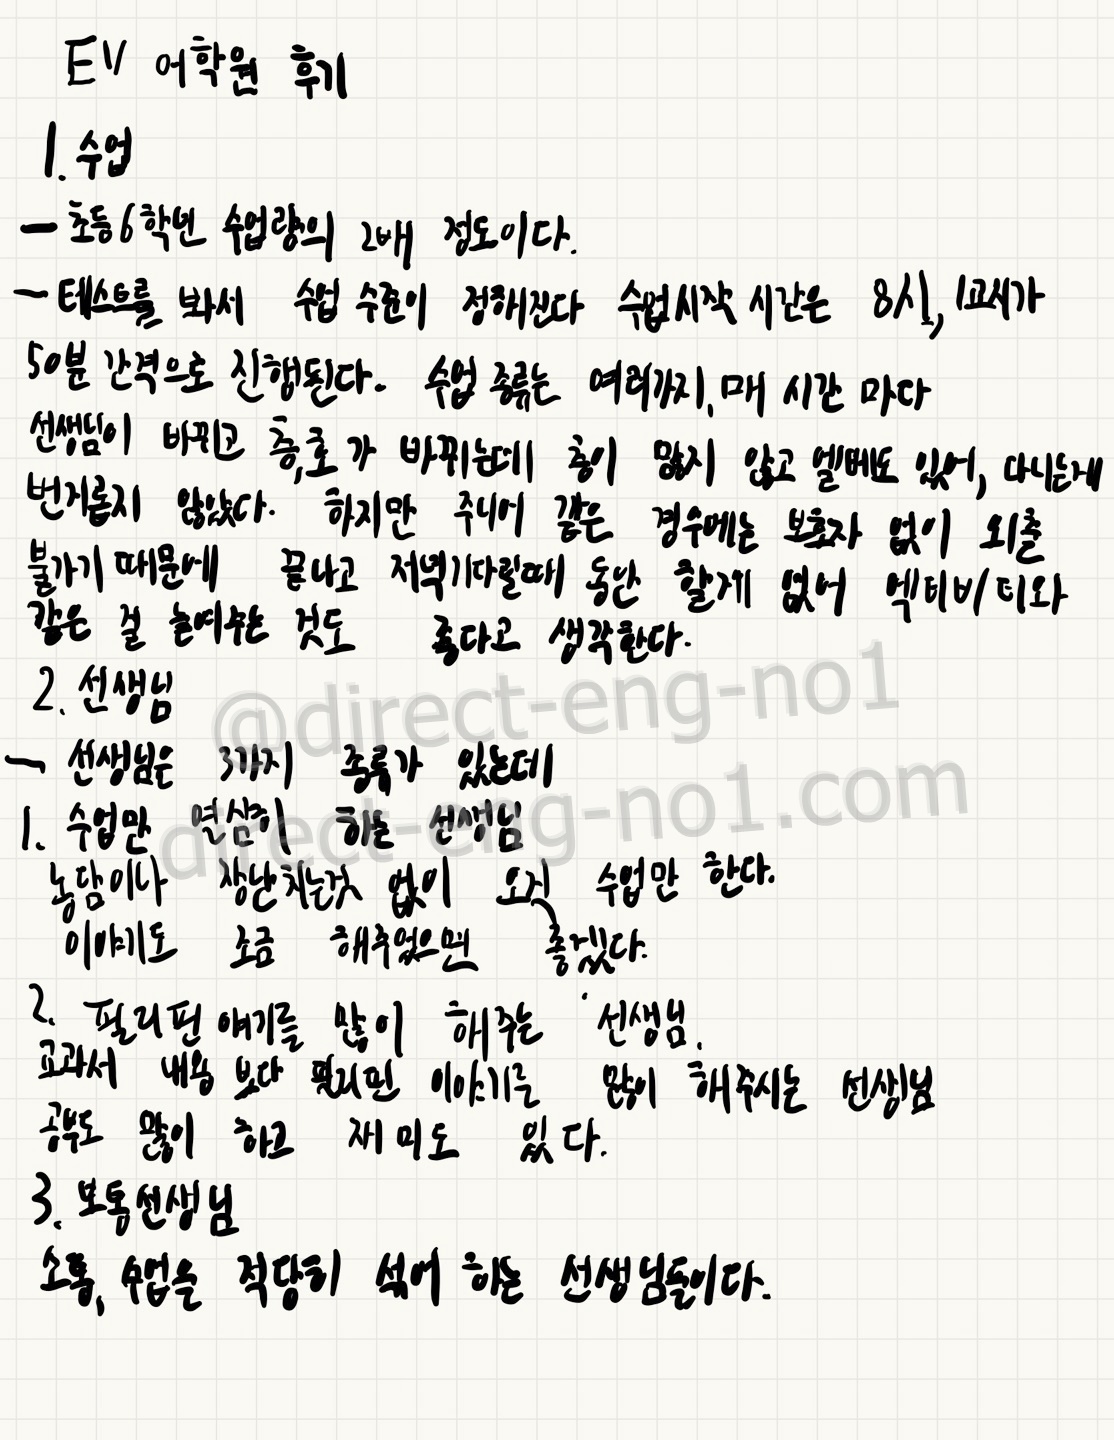 EV 어학원 후기
1. 수업
- 초등6학년 수업량의 2배 정도이다.
- 테스트를 봐서 수업 수준이 정해진다 수업시작 시간은 8시, 1교시가
50분 간격으로 진행된다. 수업 종류는 여러가지, 매 시간 마다
선생님이 바뀌고 층,호가 바뀌는데 층이 많지 않고 엘베도 있어, 다니는게
번거롭지 않았다. 하지만 주니어 같은 경우에는 보호자 없이 외출
불가기 때문에 끝나고 저녁기다릴때 동안 할게 없어 엑티비티와
같은 걸 늘여주는 것도 좋다고 생각한다.
2. 선생님
@direct-eng-no1
- 선생님은 3가지 종류가 있는데
direct-eng-no1.com
1. 수업만 열심히 하는 선생님
농담이나 장난치는것 없이 오직 수업만 한다.
이야기도 조금 해주었으면 좋겠다.
2. 필리핀 얘기를 많이 해주는 선생님.
교과서 내용 보다 필리핀 이야기를 많이 해주시는 선생님
공부도 많이 하고 재미도 있다.
3. 보통선생님
소통, 수업을 적당히 섞어 하는 선생님들이다.